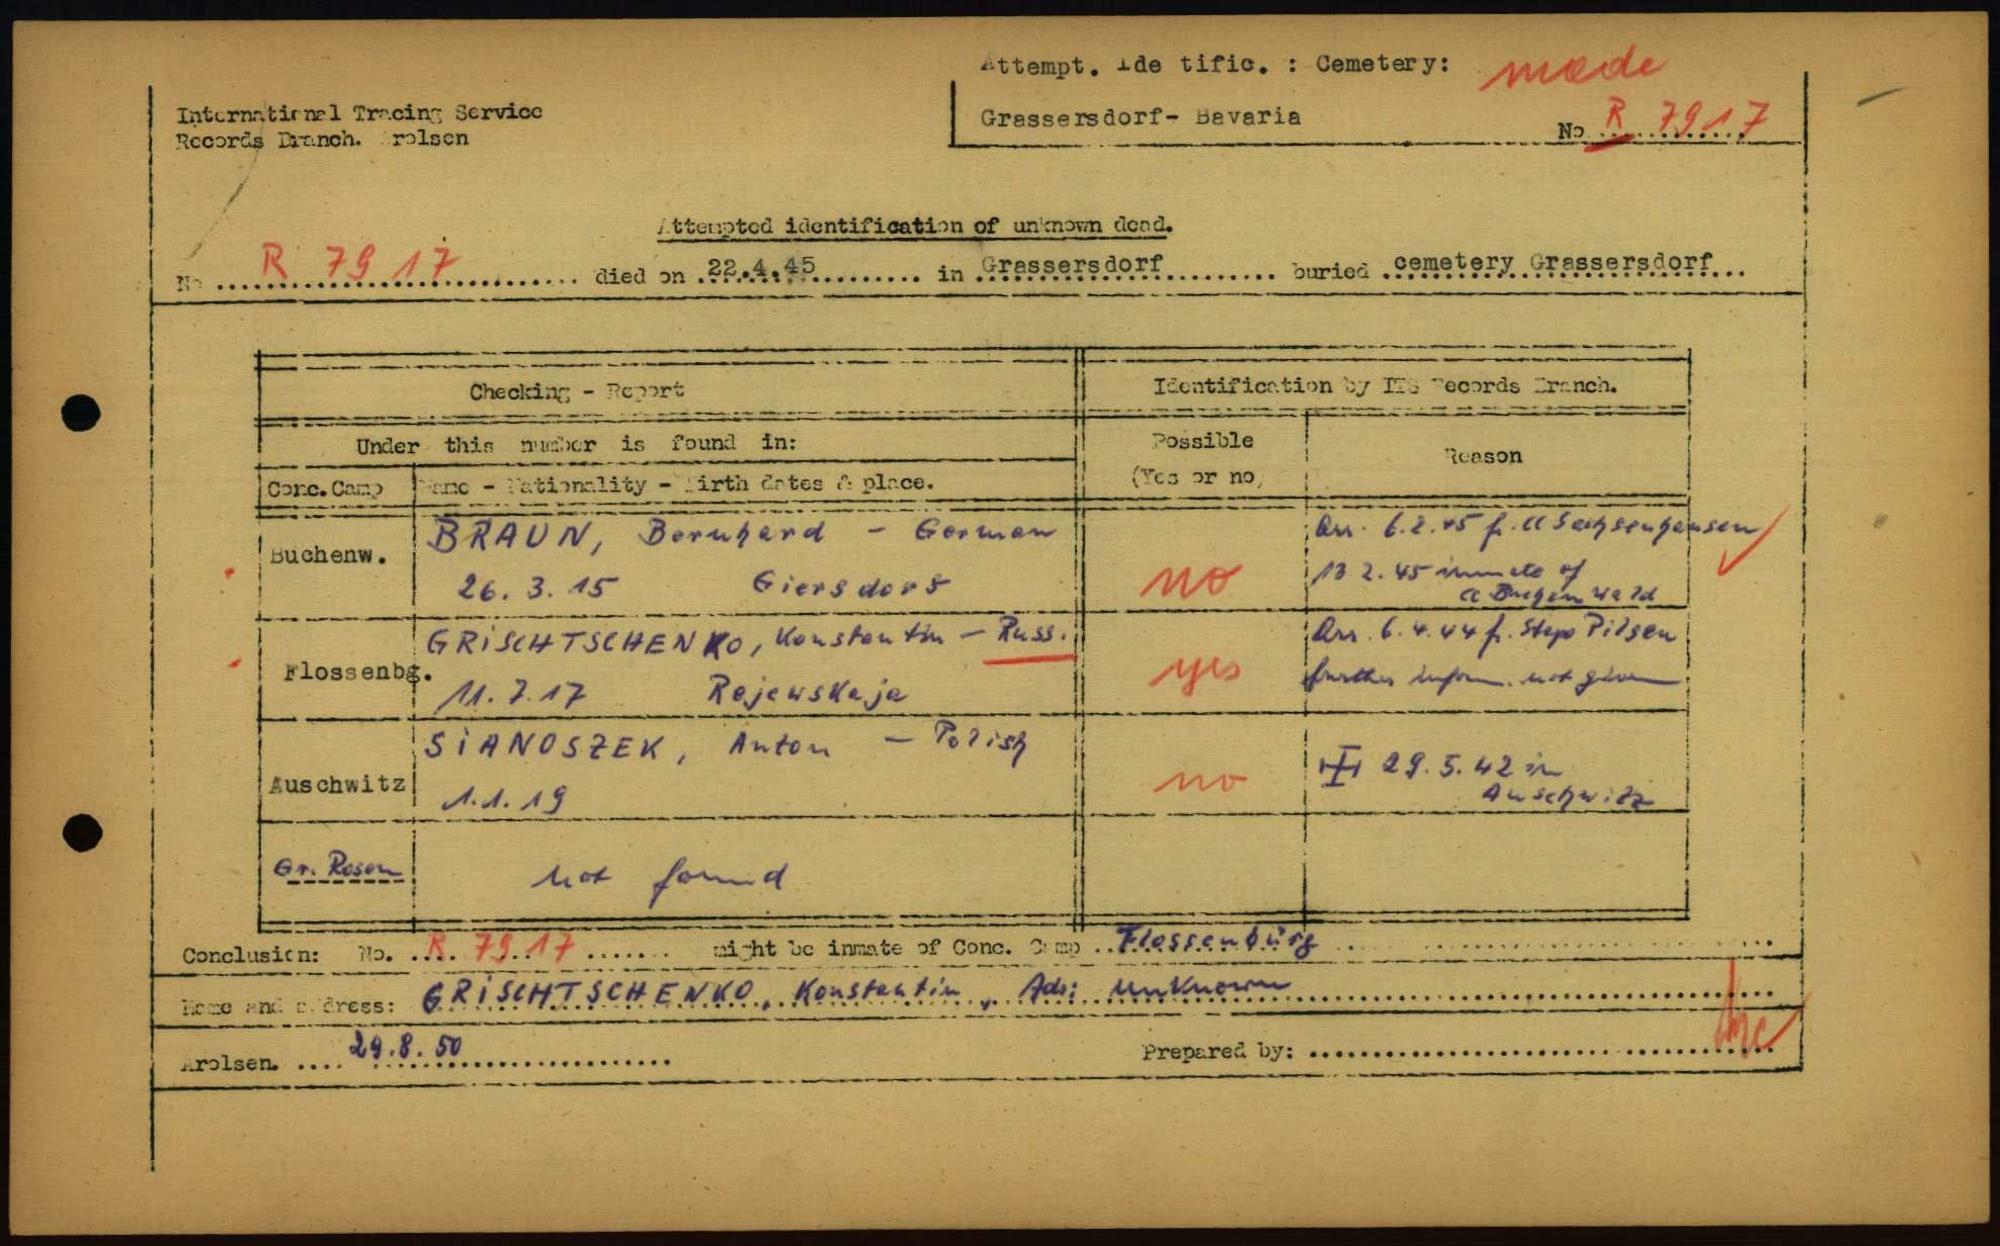 Attempt. Ide tific. : Cemetery: made
Grassersdorf- Bavaria
No R 7917
International Tracing Service
Records Branch. Arolsen
Attempted identification of unknown dead.
No R 7917 died on 22.4.45 in Grassersdorf buried cemetery Grassersdorf
Checking - Report
Identification by ITS Records Branch.
Under this number is found in:
Possible
(Yes or no)
Reason
Conc. Camp
Name - Nationality - Birth dates & place.
Buchenw.
BRAUN, Bernhard - German
26. 3. 15 Giersdorf
no
Arr. 6.2.45 f. CC Sachsenhausen
13 2. 45 inmate of
CC Buchenwald
Flossenbg.
GRISCHTSCHENKO, Konstantin - Russ.
11. 7. 17 Rejewskaja
yes
Arr. 6.4.44 f. Stapo Pilsen
further inform. not given
Auschwitz
SIANOSZEK, Anton - Polish
1. 1. 19
no
29. 5. 42 in
Auschwitz
Gr. Rosen
not found
Conclusion: No. R. 7917 might be inmate of Conc. Camp Flossenbürg
Name and address: GRISCHTSCHENKO, Konstantin, Adr; unknown
Arolsen. 29. 8. 50
Prepared by: